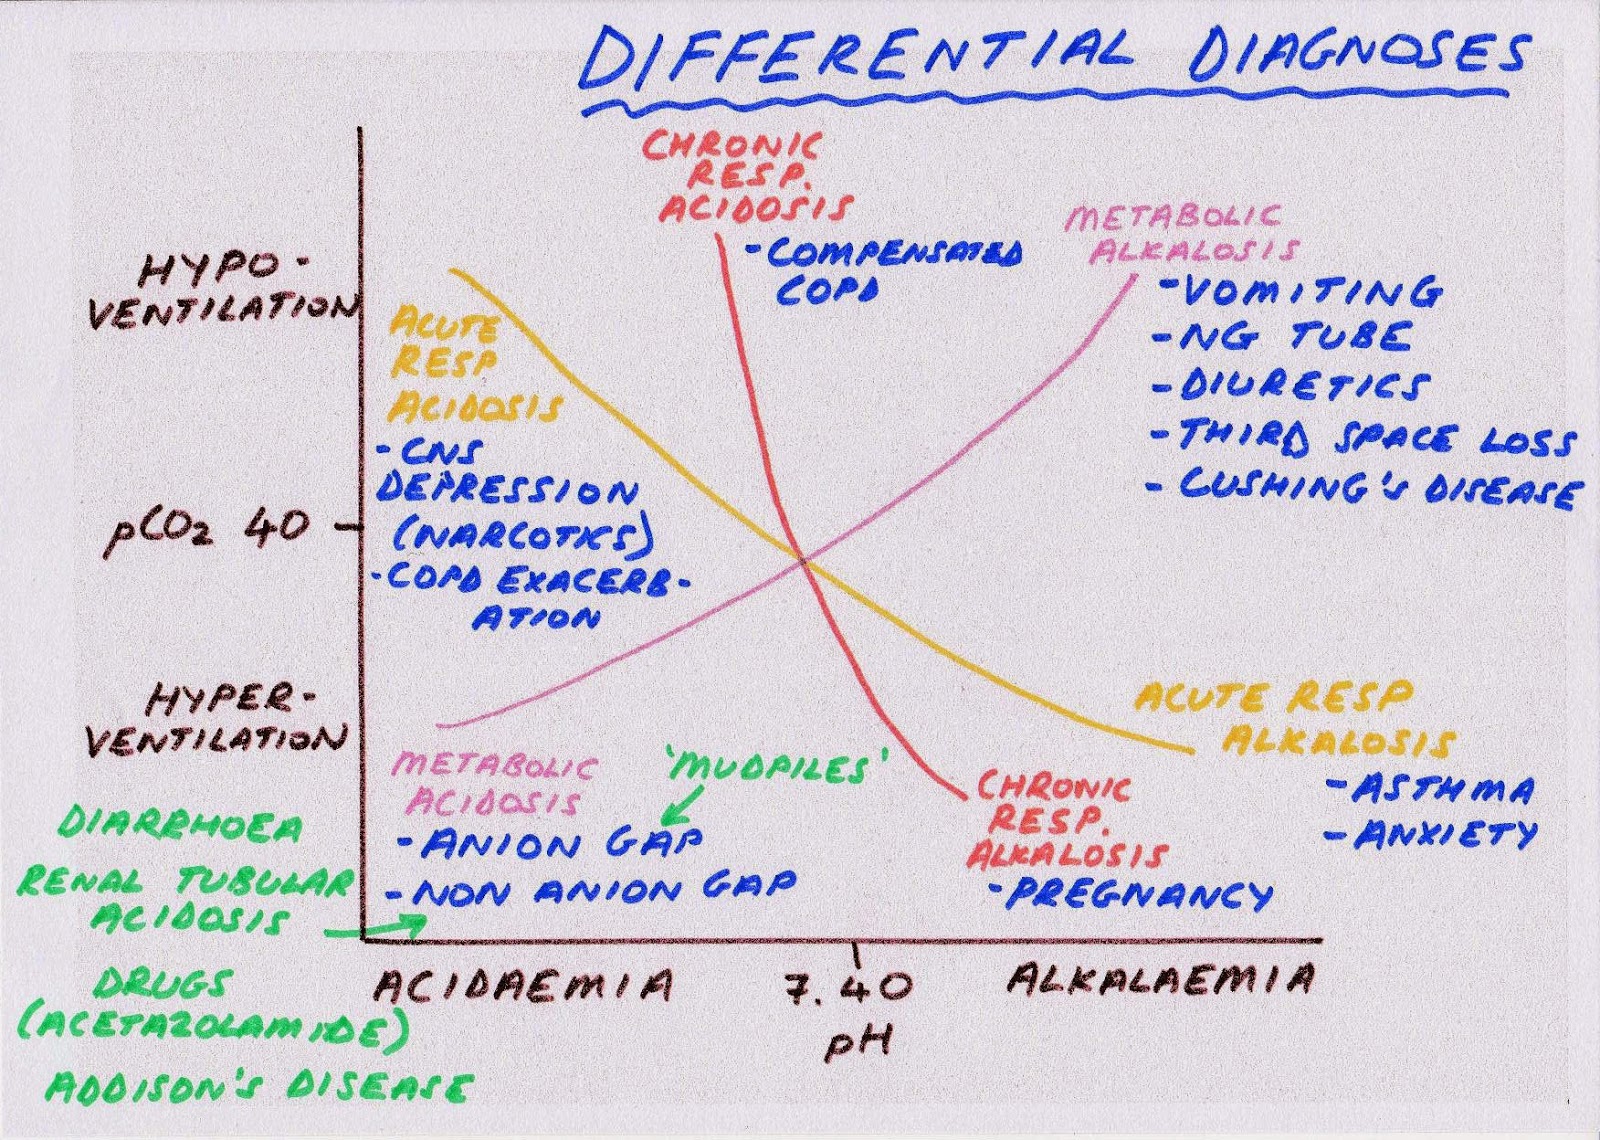 DIFFERENTIAL DIAGNOSES
CHRONIC
RESP.
ACIDOSIS
- COMPENSATED
COPD
METABOLIC
ALKALOSIS
- VOMITING
- NG TUBE
- DIURETICS
- THIRD SPACE LOSS
- CUSHING'S DISEASE
HYPO-
VENTILATION
ACUTE
RESP
ACIDOSIS
- CNS
DEPRESSION
(NARCOTICS)
- COPD EXACERB-
ATION
pCO2 40
HYPER-
VENTILATION
METABOLIC
ACIDOSIS
'MUDPILES'
- ANION GAP
- NON ANION GAP
CHRONIC
RESP.
ALKALOSIS
- PREGNANCY
ACUTE RESP
ALKALOSIS
- ASTHMA
- ANXIETY
DIARRHOEA
RENAL TUBULAR
ACIDOSIS
DRUGS
(ACETAZOLAMIDE)
ADDISON'S DISEASE
ACIDAEMIA
7.40
ALKALAEMIA
pH